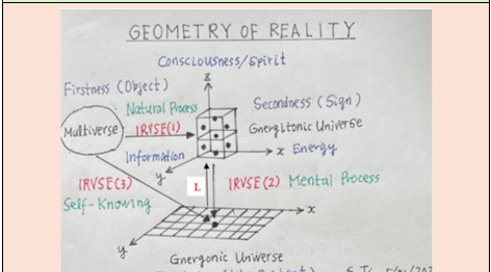 GEOMETRY OF REALITY
Consciousness/Spirit
z
Firstness (Object)
Natural Process
Secondness (Sign)
Multiverse
IRVSE(1)
Gnergitonic Universe
Information
x Energy
y
IRVSE(3)
L
IRVSE(2) Mental Process
Self-Knowing
x
y
Gnergonic Universe